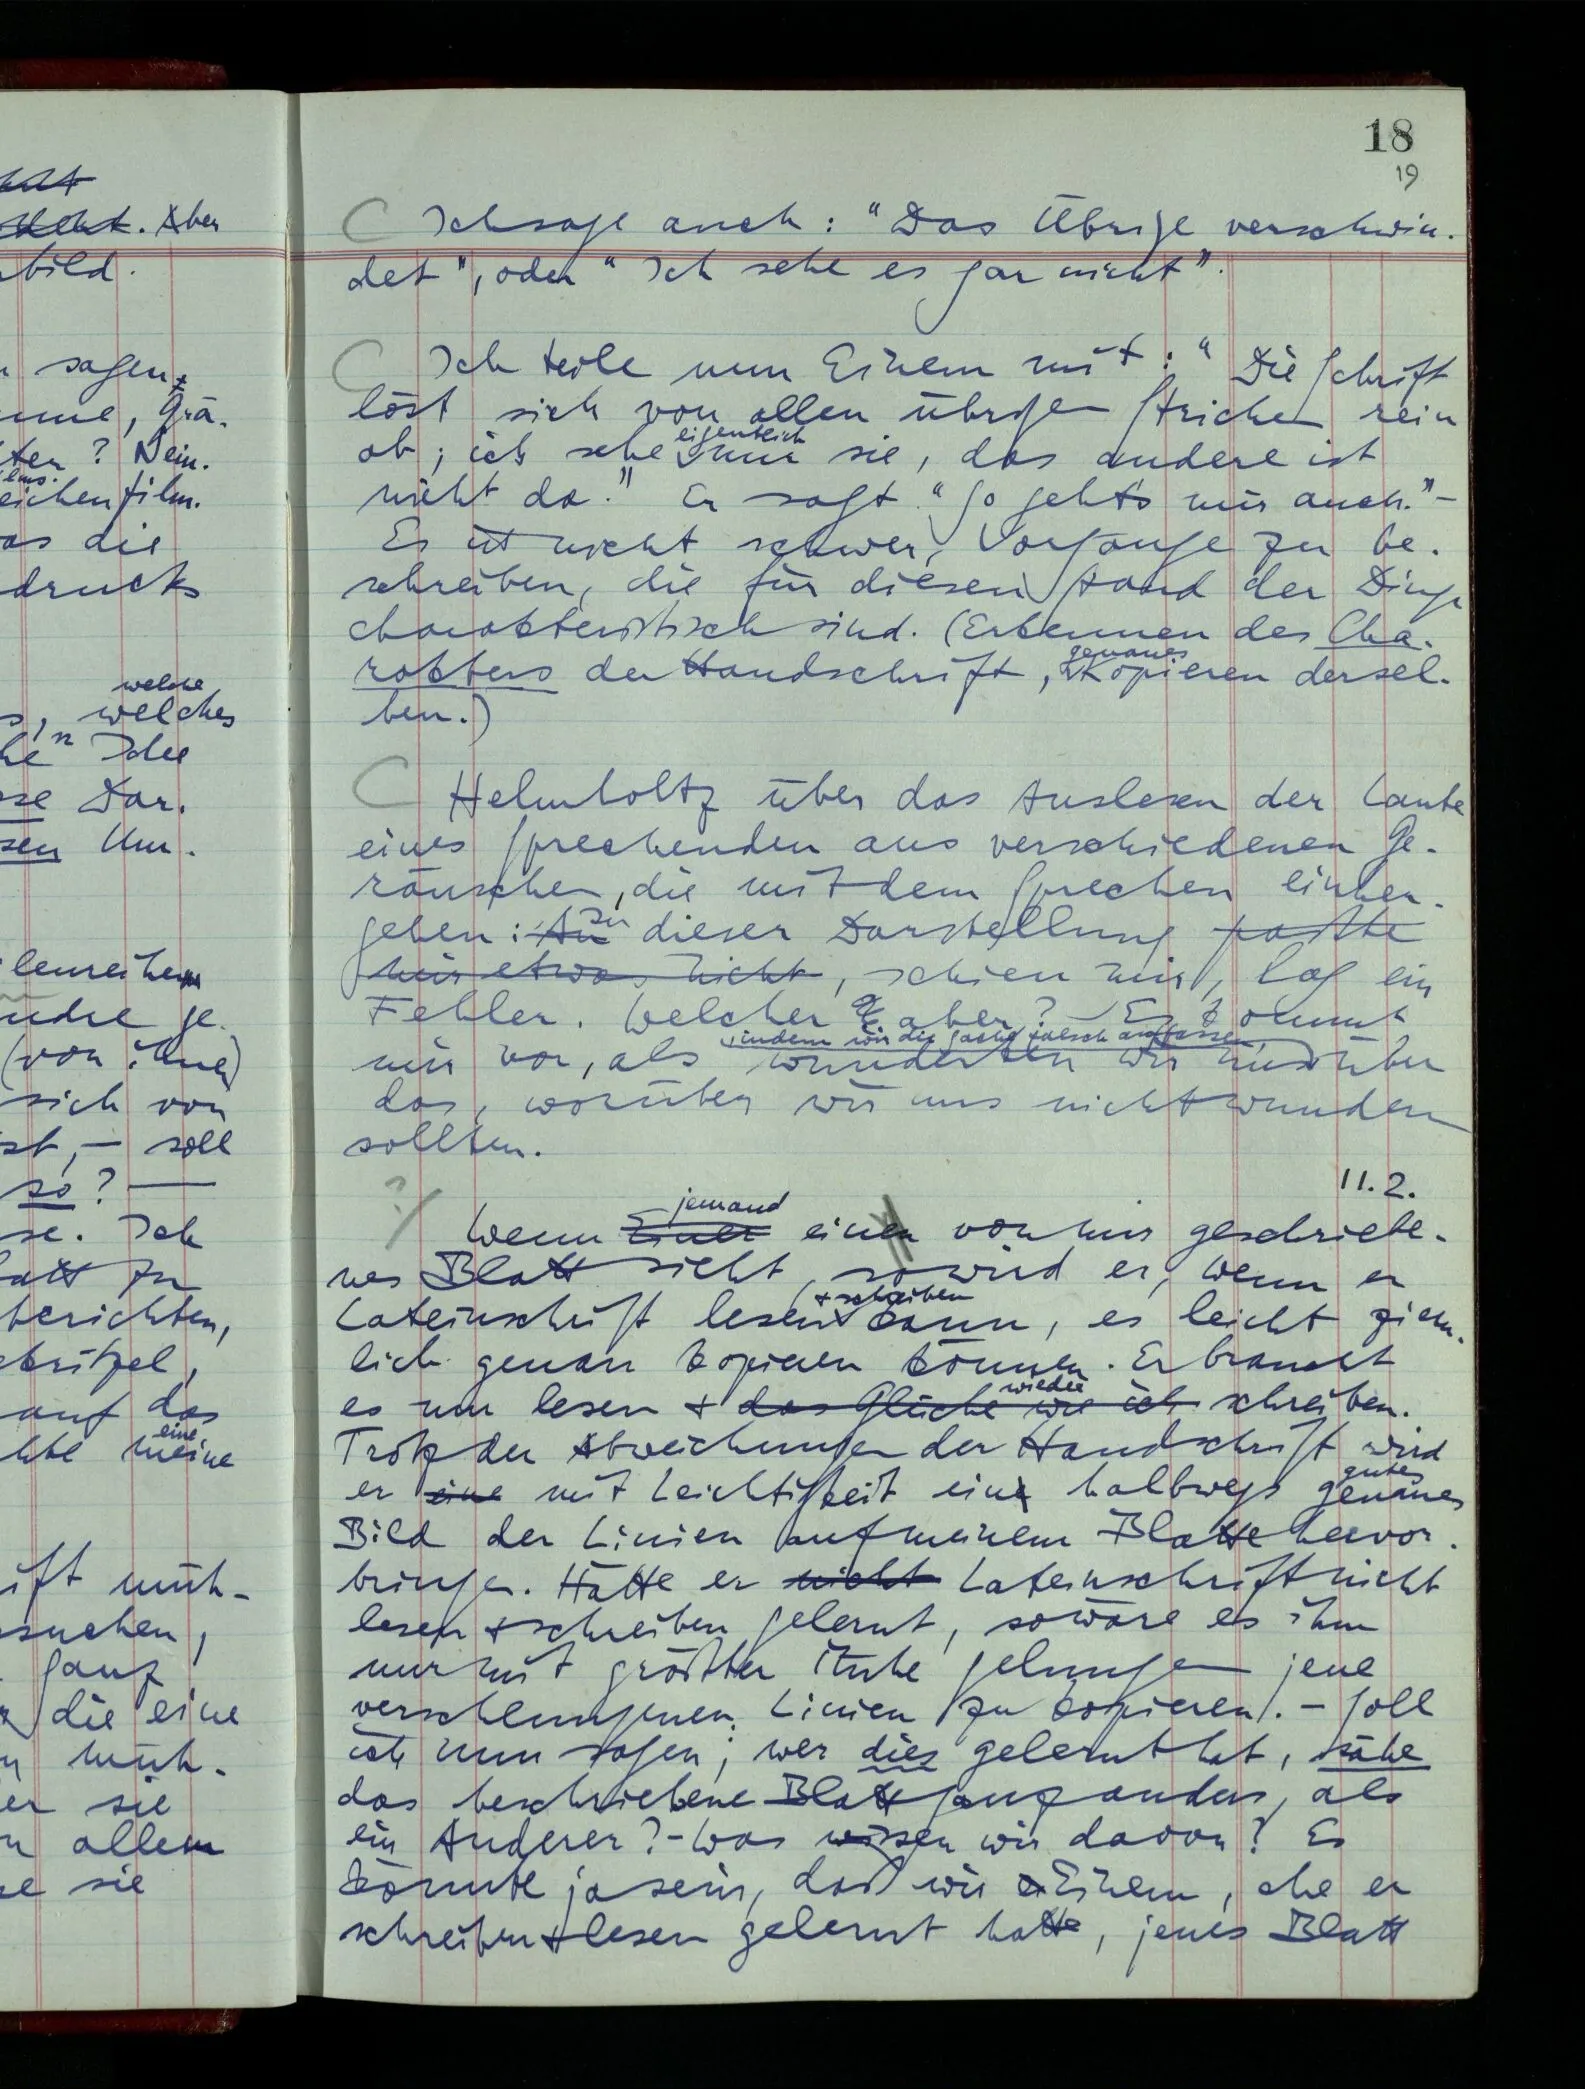 18
19
Ich sage auch: "Das Übrige verschwin-
det", oder "Ich sehe es gar nicht".
Ich teile nun Einem mit: "Die Schrift
löst sich von allen übrigen Strichen rein
ab; ich sehe eigentlich nur sie, das andere ist
nicht da." Er sagt "So geht's mir auch." –
Es ist nicht schwer, Vorgänge zu be-
schreiben, die für diesen Stand der Dinge
charakteristisch sind. (Erkennen des Cha-
rakters der Handschrift, genaues Kopieren dersel-
ben.)
Helmholtz über das Auslesen der Laute
eines Sprechenden aus verschiedenen Ge-
räuschen, die mit dem Sprechen einher-
gehen: An in dieser Darstellung passte
mir etwas nicht, schien mir, lag ein
Fehler. Welcher aber? Es kommt
mir vor, als, indem wir die Sache falsch auffassen, wunderten wir uns über
das, worüber wir uns nicht wundern
sollten.
11.2.
?/ Wenn Einer jemand einen von mir geschriebe-
nes Blatt sieht, so wird er, wenn er
Lateinschrift lesen + schreiben kann, es leicht ziem-
lich genau kopieren können. Er braucht
es nur lesen + das Gleiche wie ich wieder schreiben.
Trotz der Abweichungen der Handschrift wird
er eine mit Leichtigkeit ein halbwegs genaues gutes
Bild der Linien auf meinem Blatte hervor-
bringen. Hätte er nicht Lateinschrift nicht
lesen + schreiben gelernt, so wäre es ihm
nur mit größter Mühe gelungen jene
verschlungenen Linien zu kopieren. – Soll
ich nun sagen; wer dies gelernt hat, sähe
das beschriebene Blatt ganz anders, als
ein Anderer? – Was wissen wir davon? Es
könnte ja sein, daß wir Einem, ehe er
schreiben + lesen gelernt hatte, jenes Blatt